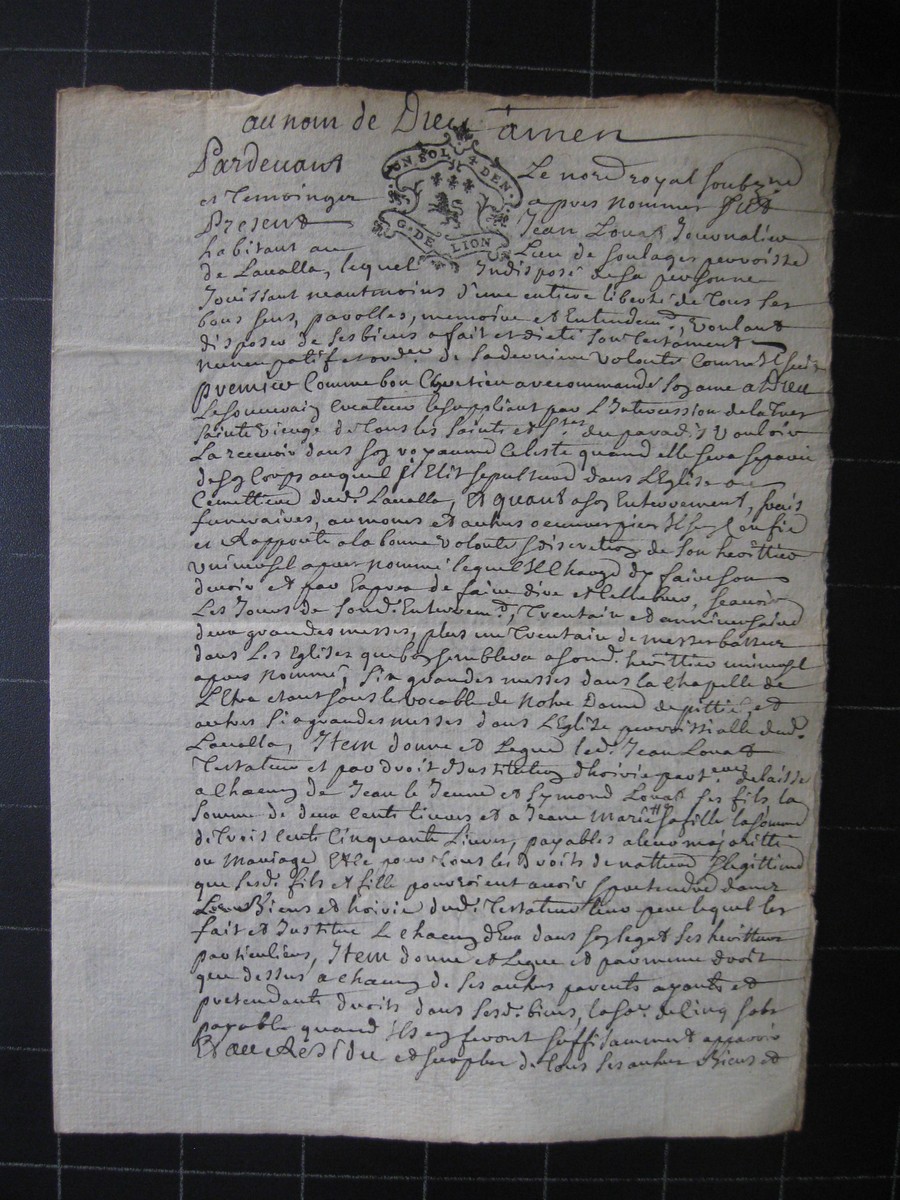 au nom de Dieu amen
Pardevant Le nore royal soubzné
et Temoingz apres nommes fut
Present Jean Louat Journalier
habitant au Lieu de soulages perroisse
de Lavalla, lequel Indisposé de sa personne
Jouissant neantmoins d'une entiere liberté de Tous ses
bons sens, parolles, memoire et Entendemt, voulant
disposer de ses biens a fait et dicté son Testament
nuncupatif et ordre de sa derniere volonté Comme s'ensuit
premier Comme bon Chretien a recommandé son ame a Dieu
Le souverain Createur le suppliant par L'Intercession de la Tres
sainte vierge de Tous les saints et stes du paradis vouloir
La recevoir dans son royaume Celeste quand elle sera separée
de son Corps auquel Il Elit sepulture dans L'Eglise ou
Cemettiere dudt Lavalla, Et quant a son Enterrement, frais
funeraires, aumones et autres oeuvres pies Il sen Confie
et Rapporte a la bonne volonté et discretion de son herittier
universel apres nommé lequel Il Charge de faire son
devoir et par Exprez de faire dire et Cellebrer, scavoir
Les Jours de son d. Enterremt, Trentain et anniversaire
deux grandes messes, plus un Trentain de messes basses
dans Les Eglises que bon semblera a son d. herittier universel
apres Nommé, six grandes messes dans la Chapelle de
L'Etra etant sous le vocable de Notre Dame de pittié, et
autres six grandes messes dans L'Eglise perroissialle dud.
Lavalla, Item donne et Legue led. Jean Louat
Testateur et par droit d'Institution d'hoirie delaisse
a Chacun de Jean le Jeune et Symond Louat ses fils la
somme de deux Cents livres et a Jeane Marie sa fille la somme
de Trois Cents Cinquante Livres, payables a leur majoritté
ou Mariage Et Ce pour Tous les droits de nature Legittime
que sesd. fils et fille pourroient avoir et pretendre dans
Les Biens et hoirie dudt Testateur leur pere lequel les
fait et Institue Le Chacun d'Eux dans son legat ses herittiers
particuliers, Item donne et Legue et par meme droit
que dessus a Chacun de ses autres parents ayants et
pretendants droits dans sesd. biens, la soe de Cinq sols
payable quand Ils en feront suffisamment apparoir
Et au Residu et surplus de Tous ses autres Biens et
UN SOL 4 DEN.
G. DE LION